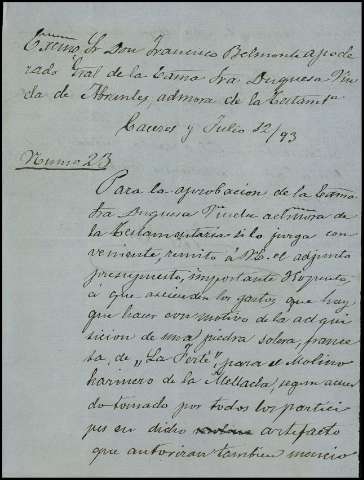 Excmo Sr Don Francisco Belmonte apode
rado Gral de la Excma Sra Duquesa Viu
da de Abrantes, admora de la Testamta
Caceres y Julio 12/93
Numo 23
Para la aprobacion de la Excma
Sra Duquesa Viuda admora de
la Testamentaria si lo juzga con
veniente, remito á V.E. el adjunto
presupuesto, importante
á que ascienden los gastos que hay
que hacer con motivo de la adqui
sicion de una piedra solera, france
sa, de "La Ferté", para el Molino
harinero de la Mellada, segun acuer
do tomado por todos los partici
pes en dicho artefacto
que autorizan tambien mencio